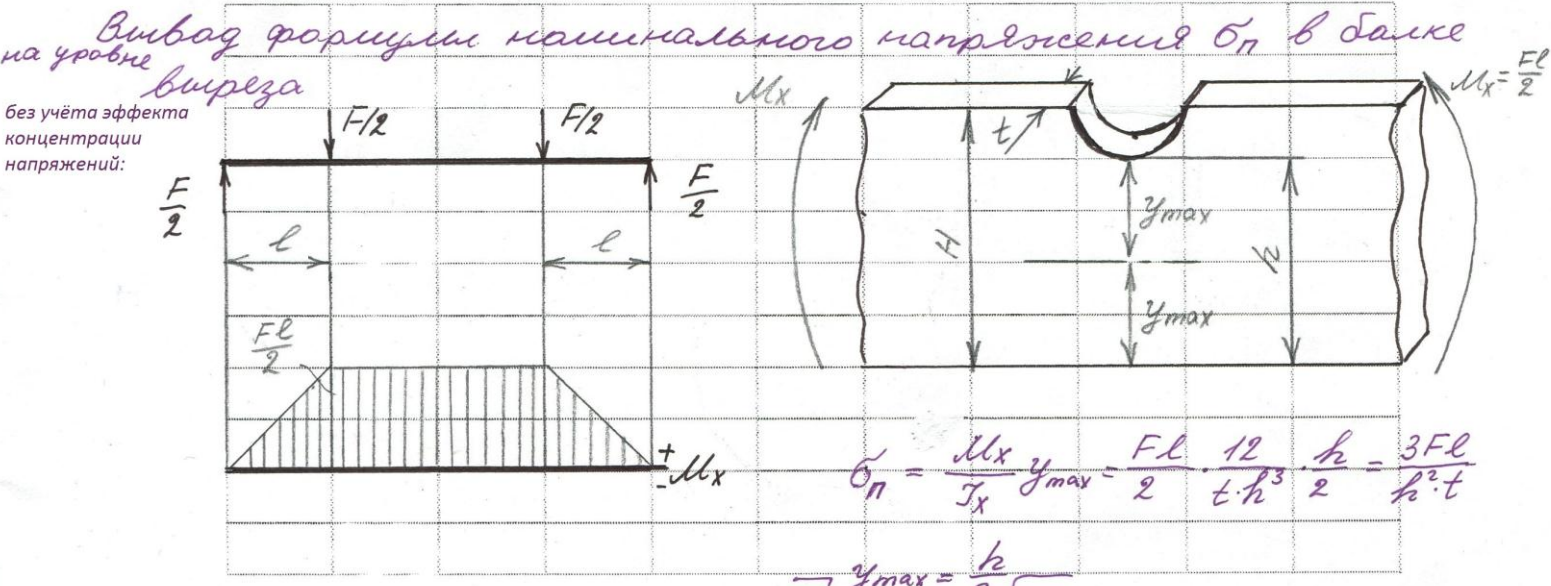 Вывод формулы номинального напряжения σп в балке
на уровне
выреза
без учёта эффекта
концентрации
напряжений:
F/2
F/2
F/2
F/2
l
l
Fl/2
+
- Mx
Mx
Mx = Fl/2
t
H
ymax
ymax
h
σп = Mx/Jx ymax = Fl/2 · 12/(t·h³) · h/2 = 3Fl/(h²·t)
ymax = h